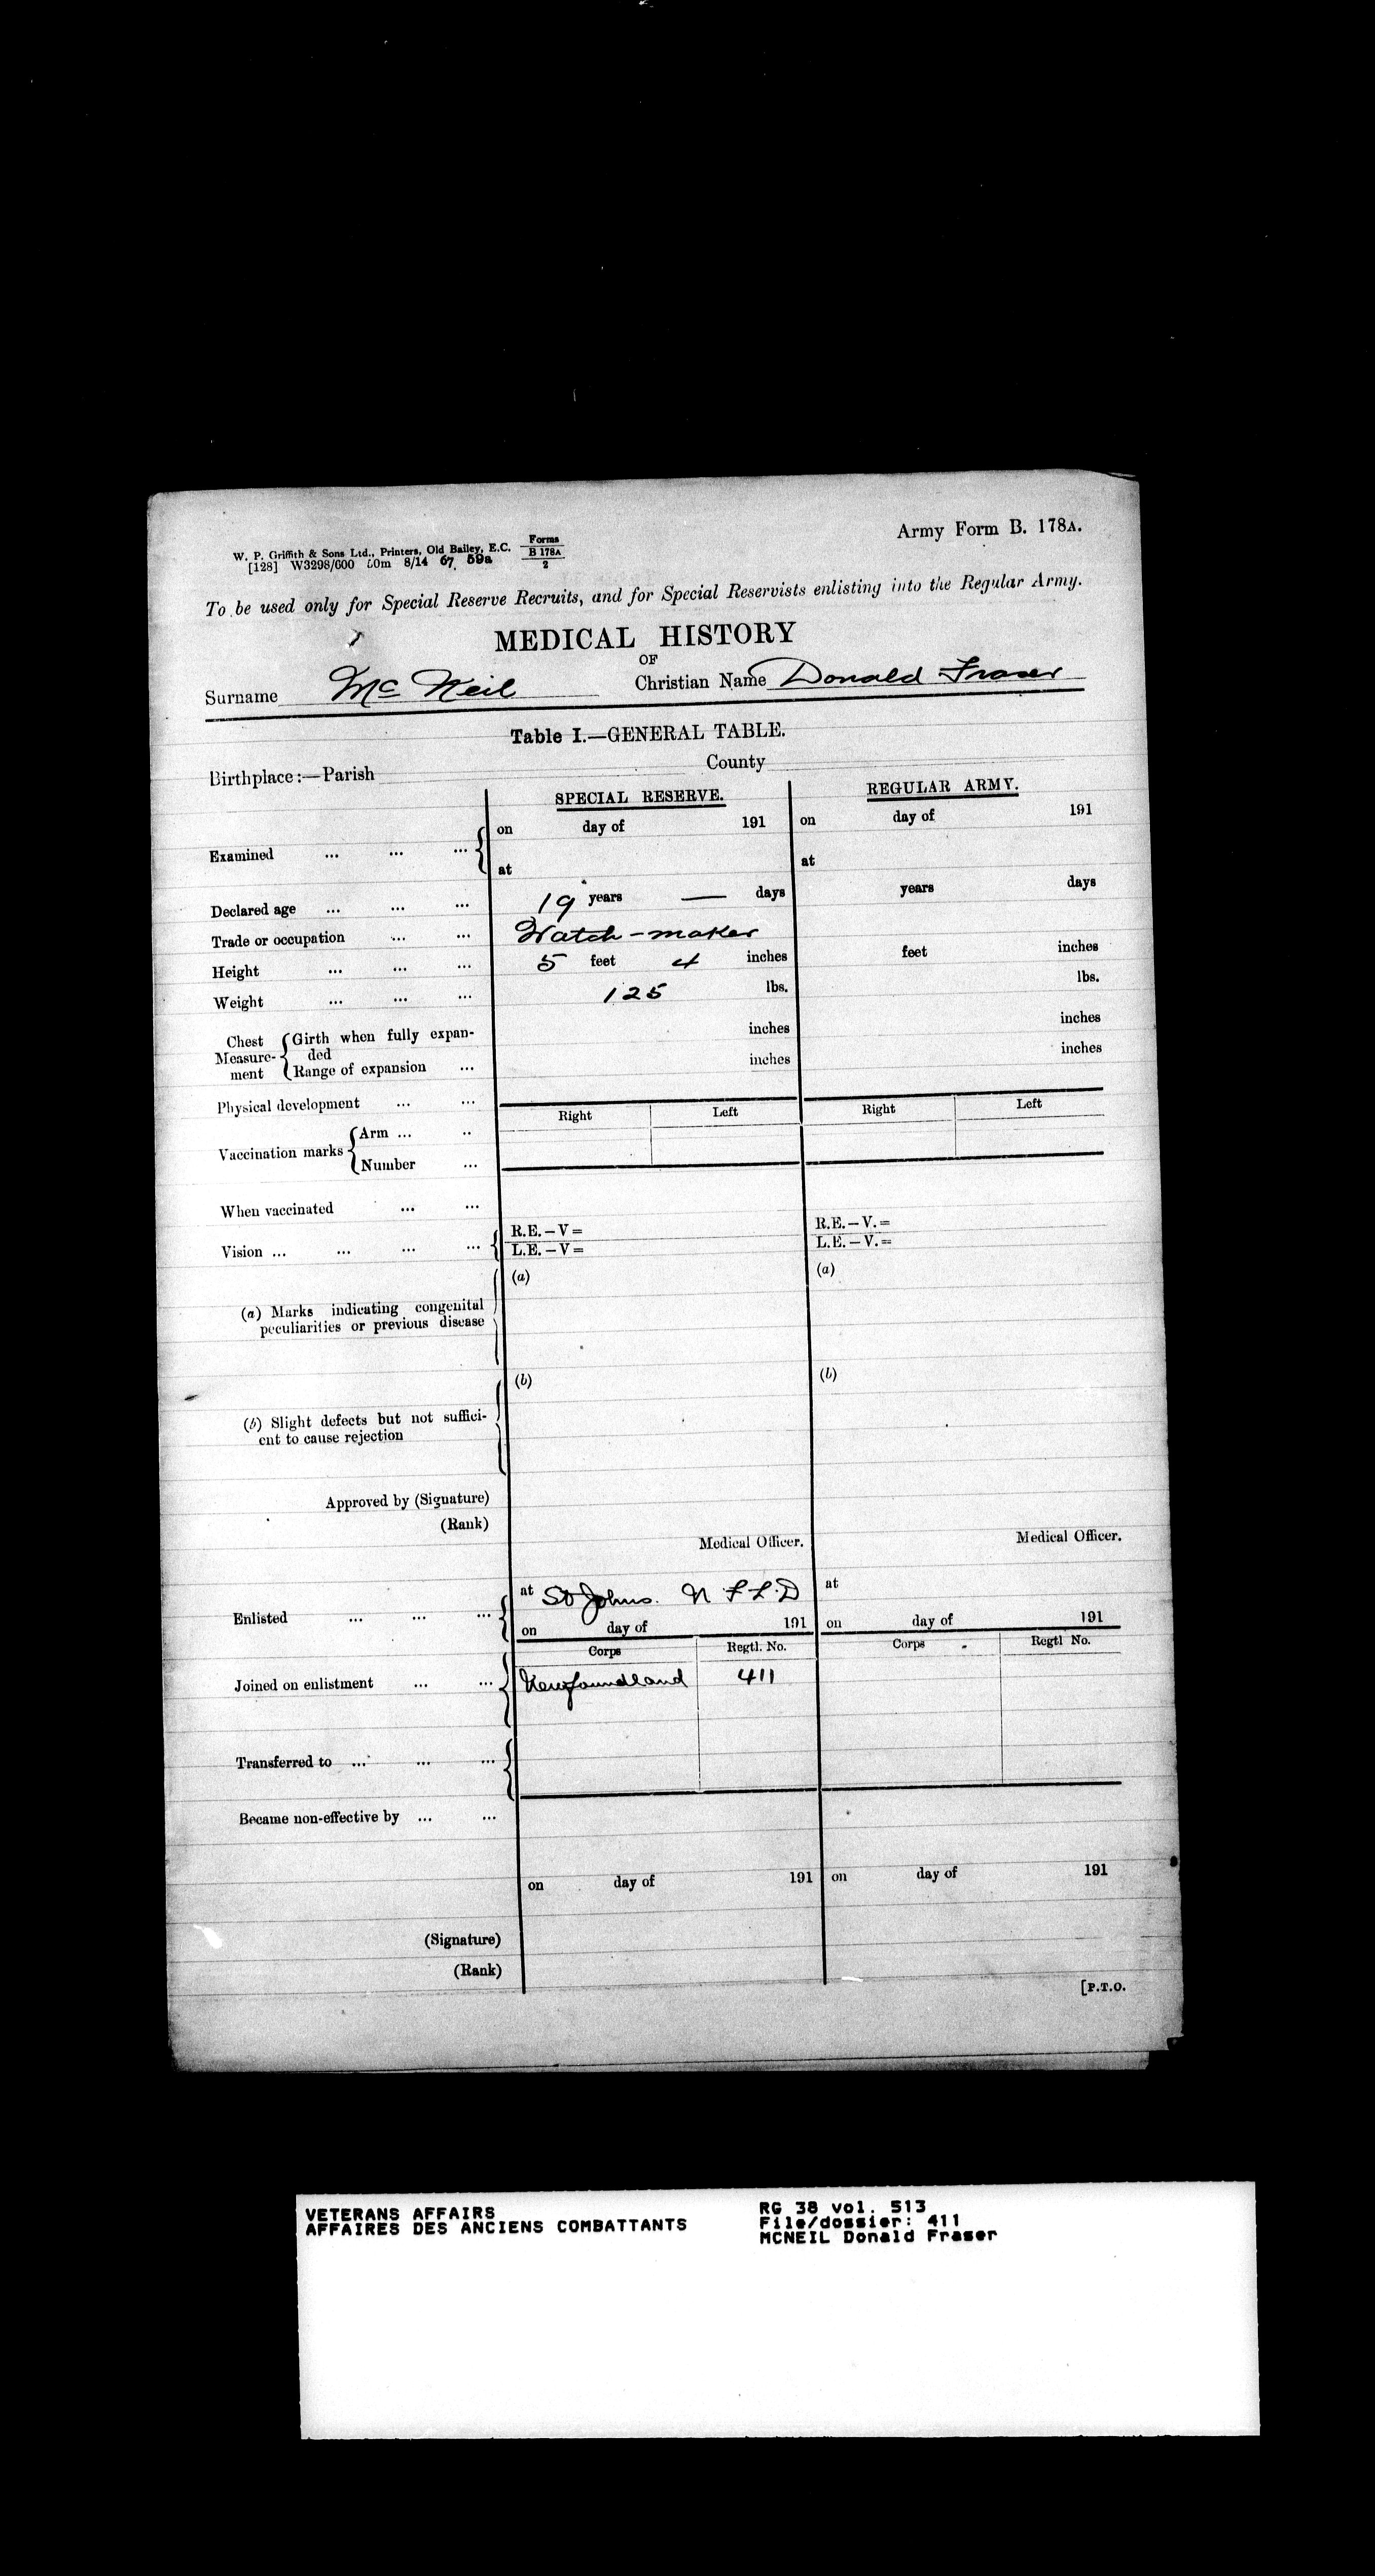 Army Form B. 178A.
W. P. Griffith & Sons Ltd., Printers, Old Bailey, E.C. Forms B 178A 2
[128] W3298/600 50m 8/14 67 59a
To be used only for Special Reserve Recruits, and for Special Reservists enlisting into the Regular Army.
MEDICAL HISTORY
OF
Surname Mc Neil Christian Name Donald Fraser
Table I.—GENERAL TABLE.
Birthplace:—Parish County
SPECIAL RESERVE. REGULAR ARMY.
on day of 191 on day of 191
Examined ... ... ...
at at
Declared age ... ... ... 19 years — days years days
Trade or occupation ... ... Watch-maker
Height ... ... ... 5 feet 4 inches feet inches
Weight ... ... ... 125 lbs. lbs.
Chest Measurement { Girth when fully expanded inches inches
Range of expansion ... inches inches
Physical development ... ...
Right Left Right Left
Vaccination marks { Arm ... ..
Number ...
When vaccinated ... ...
Vision ... ... ... ... R.E.—V= R.E.—V.=
L.E.—V= L.E.—V.=
(a) (a)
(a) Marks indicating congenital
peculiarities or previous disease
(b) (b)
(b) Slight defects but not suffici-
ent to cause rejection
Approved by (Signature)
(Rank)
Medical Officer. Medical Officer.
at St Johns. N F L D at
Enlisted ... ... ...
on day of 191 on day of 191
Corps Regtl. No. Corps Regtl No.
Joined on enlistment ... ... Newfoundland 411
Transferred to ... ... ...
Became non-effective by ... ...
on day of 191 on day of 191
(Signature)
(Rank)
[P.T.O.
VETERANS AFFAIRS
AFFAIRES DES ANCIENS COMBATTANTS
RG 38 vol. 513
File/dossier: 411
MCNEIL Donald Fraser